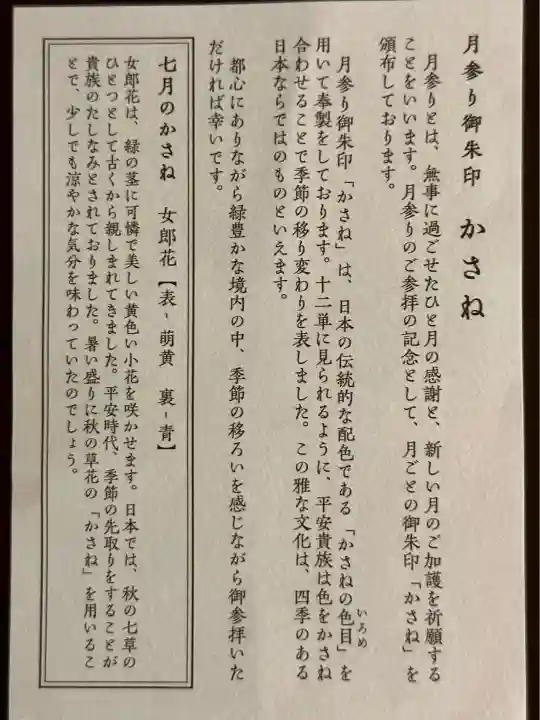 月参り御朱印　かさね
月参りとは、無事に過ごせたひと月の感謝と、新しい月のご加護を祈願する
ことをいいます。月参りのご参拝の記念として、月ごとの御朱印「かさね」を
頒布しております。
月参り御朱印「かさね」は、日本の伝統的な配色である「かさねの色目」を
いろめ
用いて奉製をしております。十二単に見られるように、平安貴族は色をかさね
合わせることで季節の移り変わりを表しました。この雅な文化は、四季のある
日本ならではのものといえます。
都心にありながら緑豊かな境内の中、季節の移ろいを感じながら御参拝いた
だければ幸いです。
七月のかさね　女郎花【表-萌黄　裏-青】
女郎花は、緑の茎に可憐で美しい黄色い小花を咲かせます。日本では、秋の七草の
ひとつとして古くから親しまれてきました。平安時代、季節の先取りをすることが
貴族のたしなみとされておりました。暑い盛りに秋の草花の「かさね」を用いるこ
とで、少しでも涼やかな気分を味わっていたのでしょう。